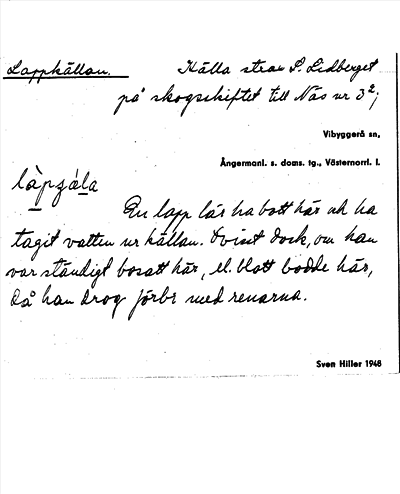 Lappkällan.
Källa strax S. Lidberget
på skogsskiftet till Näs nr 3²;
Vibyggerå sn,
Ångermanl. s. doms. tg., Västernorrl. l.
En lapp lär ha bott här och ha
tagit vatten ur källan. Ovisst dock, om han
var ständigt bosatt här, el. blott bodde här,
då han drog förbi med renarna.
Sven Hiller 1948